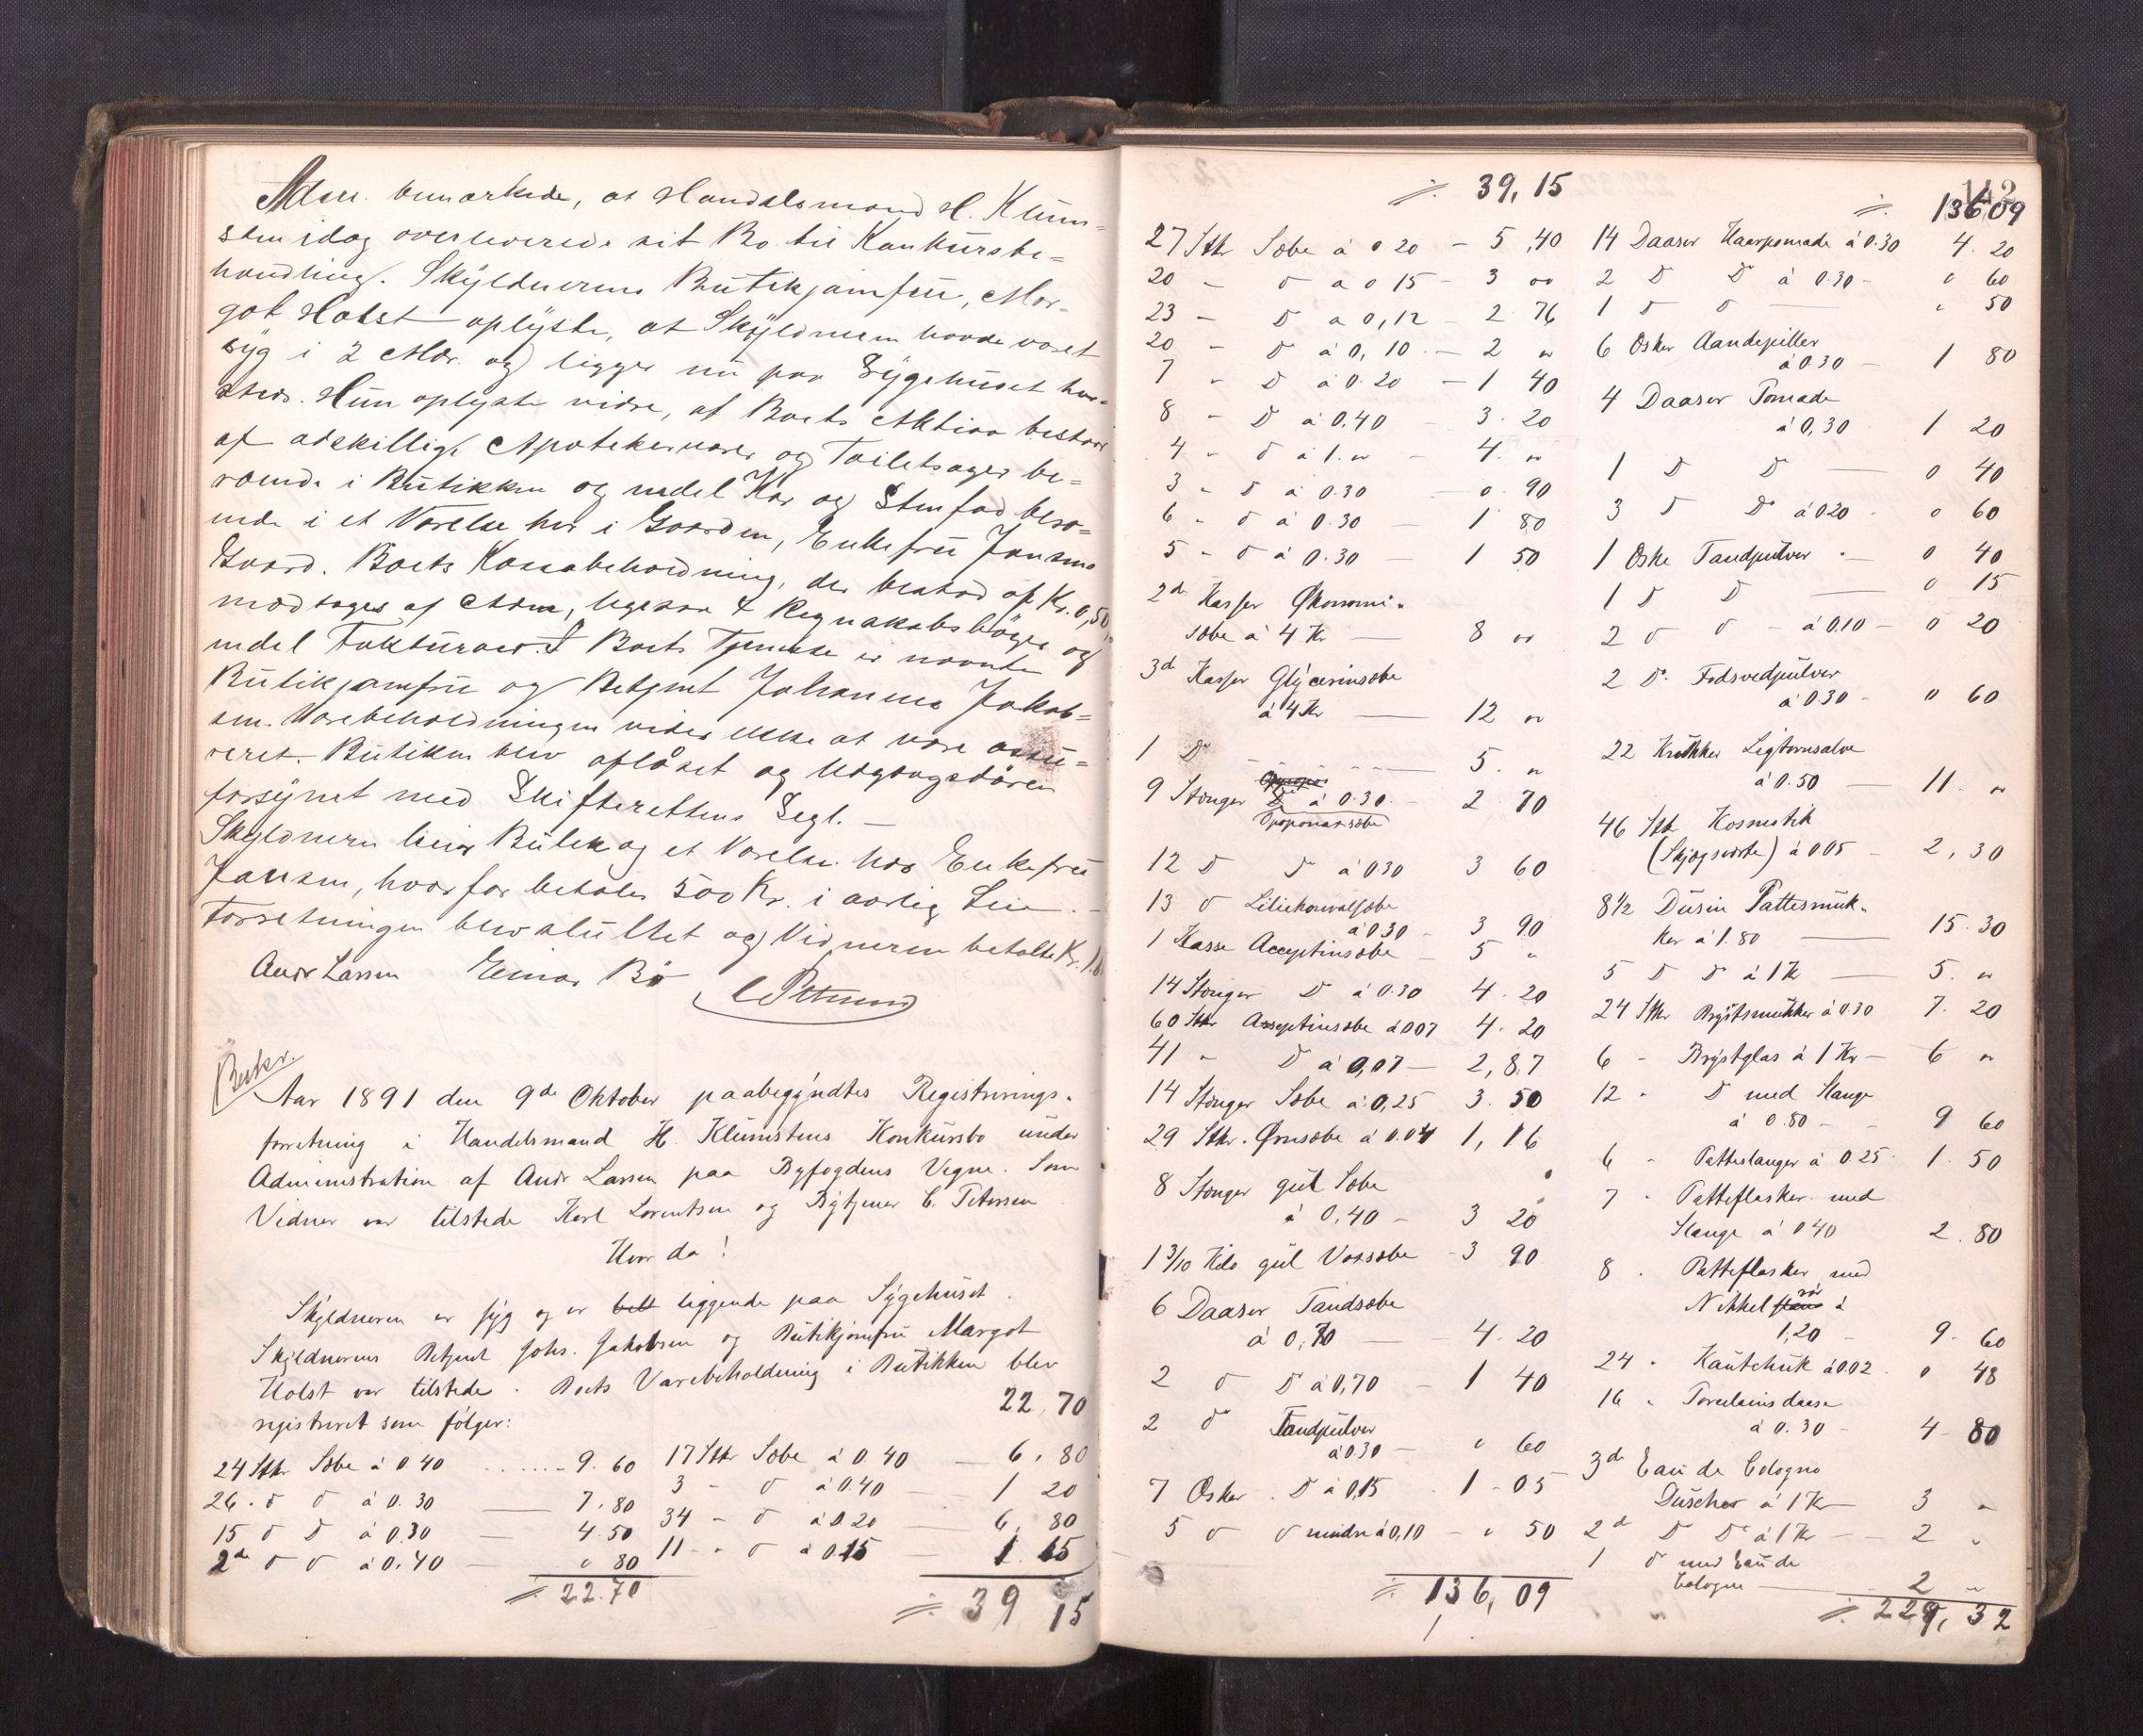 Adm. bemærkede, at Handelsmand H. Klum-
sten idag overleverede sit Bo til Konkursbe-
handling. Skyldnerens Butikjomfru, Mar-
got Holst oplyste, at Skyldneren havde været
syg i 2 Mdr. og ligger nu paa Sygehuset her-
steds. Hun oplyste vidre, at Boets Aktiva bestaar
af adskillige Apotekervarer og Toiletsager be-
roende i Butikken og nedel Kar og Stenfad bero-
ende i et Værelse her i Gaarden, Enkefru Jansens
Gaard. Boets Kassabeholdning, der bestod af Kr. 0,50,
modtoges af Adm., ligesaa 4 Regnskabsbøger og
endel Fakturaer. I Boets Tjeneste er nævnte
Butikjomfru og Betjent Johannes Jakob-
sen. Varebeholdningen vides ikke at være assu-
reret. Butiken blev aflåset og Udgangsdøren
forsynet med Skifterettens Segl. —
Skyldneren leier Butik og et Værelse hos Enkefru
Jansen, hvorfor betales 500 Kr. i aarlig Leie. —
Forretningen blev sluttet og Vidnerne betalte Kr. 1.
Andr Larsen Einar Bö
Bestr.
Aar 1891 den 9de Oktober paabegyndtes Registrerings-
forretning i Handelsmand H. Klumstens Konkursbo under
Administration af Andr Larsen paa Byfogdens Vegne. Som
Vidner var tilstede Karl Lorentsen og Bytjener C. Petersen
Hvor da!
Skyldneren er syg og er liggende paa Sygehuset.
Skyldnerens Betjent Johs. Jakobsen og Butikjomfru Margot
Holst var tilstede. Boets Varebeholdning i Butikken blev
registreret som følger:
24 Stkr Sæbe à 0.40 ...... 9.60
26 - D D à 0.30 — 7.80
15 D D à 0.30 — 4.50
2de D D à 0.40 — " 80
./. 22.70
22,70
17 Stkr Sæbe à 0.40 — 6.80
3 - D à 0.40 — 1 20
34 - D à 0.20 — 6,80
11 - D à 0.15 — 1 65
./. 39 15
./. 39,15
27 Stkr Sæbe à 0 20 — 5,40
20 - D à 0 15 — 3 00
23 - D à 0,12 — 2.76
20 - D à 0,10 — 2 "
7 - D à 0.20 — 1 40
8 - D à 0,40 — 3.20
4 - D à 1." — 4. "
3 - D à 0.30 — 0.90
6 - D à 0.30 1 80
5 - D à 0.30 — 1 50
2de Kasser Økonomi-
sæbe à 4 Kr — 8 00
3de Kasser Glycerinsæbe
à 4 Kr — 12 "
1 Do — 5. "
9 Stænger D à 0.30 — 2 70
Opoponaxsæbe
12 D D à 0.30 3 60
13 D Liliekonvalsæbe
à 0.30 — 3 90
1 Kasse Acceptinsæbe — 5 "
14 Stænger D à 0.30 4.20
60 Stkr Acceptinsæbe à 0.07 4.20
41 " D à 0,07 — 2,87
14 Stænger Sæbe à 0,25 3.50
29 Stkr. Ørnsæbe à 0.04 1,16
8 Stænger gul Sæbe
à 0,40 — 3 20
1 3/10 Kilo gul Voxsæbe — 3 90
6 Daaser Tandsæbe
à 0,70 — 4.20
2 D D à 0,70 — 1 40
2 Do Tandpulver
à 0.30 — " 60
7 Æsker D à 0,15 . 1 - 05
5 D D mindre à 0,10 — " 50
./. 136,09
142
./. 136 09
14 Daaser Haarpomade à 0.30 4.20
2 D D à 0.30 — 0 60
1 D D — " 50
6 Æsker Aandepiller
à 0.30 — 1 80
4 Daaser Pomade
à 0,30 1 20
1 D D — 0 40
3 D D à 0 20 - 0 60
1 Æske Tandpulver — 0 40
1 D D — 0 15
2 D D — à 0.10 — 0 20
2 D. Fodsvedpulver
à 0.30 — 0 60
22 Krukker Ligtornsalve
à 0.50 — 11. "
46 Stk Kosmetik
(Skjægvoxe) à 0 05 — 2,30
8 1/2 Dusin Pattesmuk-
ker à 1.80 — 15.30
5 D D à 1 K — 5. "
24 Stkr Brystsmukker à 0.30 7.20
6 - Brystglas à 1 Kr — 6 "
12 - D med Slange
à 0.80 — 9 60
6 - Patteslanger à 0.25 1.50
7 - Patteflasker med
Slange à 0 40 2.80
8 - Patteflasker med
Nikkelrør à
1,20 — 9.60
24 - Kautchuk à 0.02 . 0 48
16 - Porcelainsdaase
à 0.30 — 4 - 80
3de Eau de Cologne
Duscher à 1 Kr — 3 "
2de D Do à 1 Kr — 2 "
1 Do med Eau de
Cologne — 2 "
./. 229,32